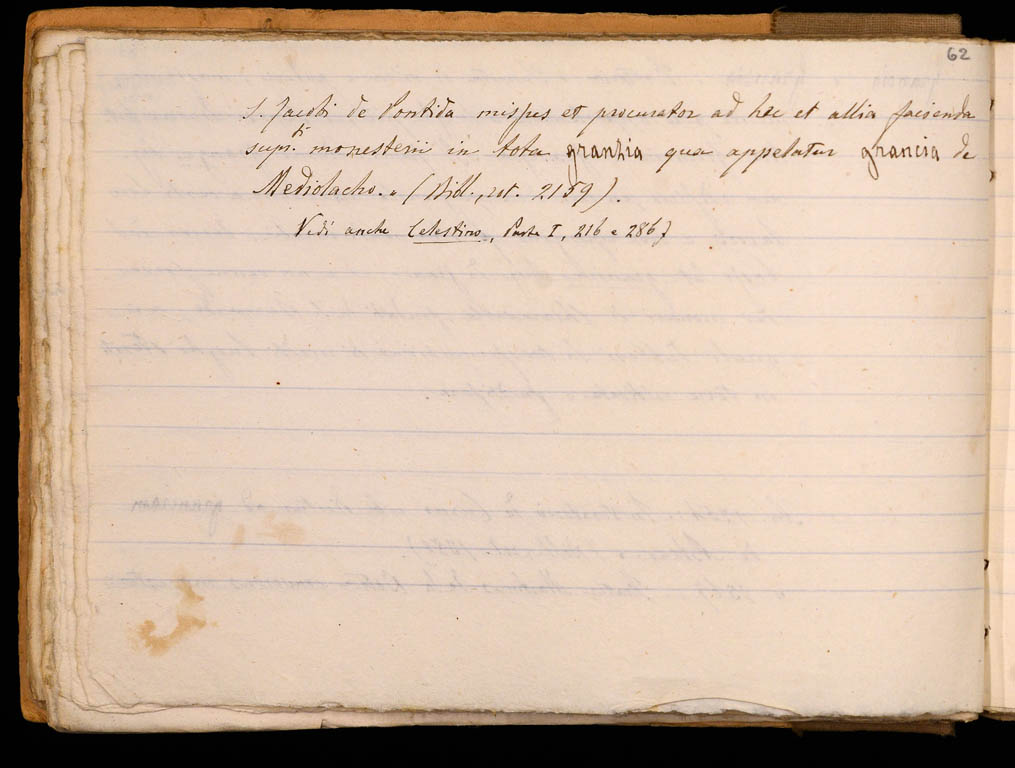 62
S. Jacobi de Pontida misses et procurator ad hec et allia facienda
supr.ti monesterii in tota granzia qua appelatur grancia de
Mediolacho. „ (Bibl., rot. 2159).
Vedi anche Celestino, Parte I, 216 e 286}